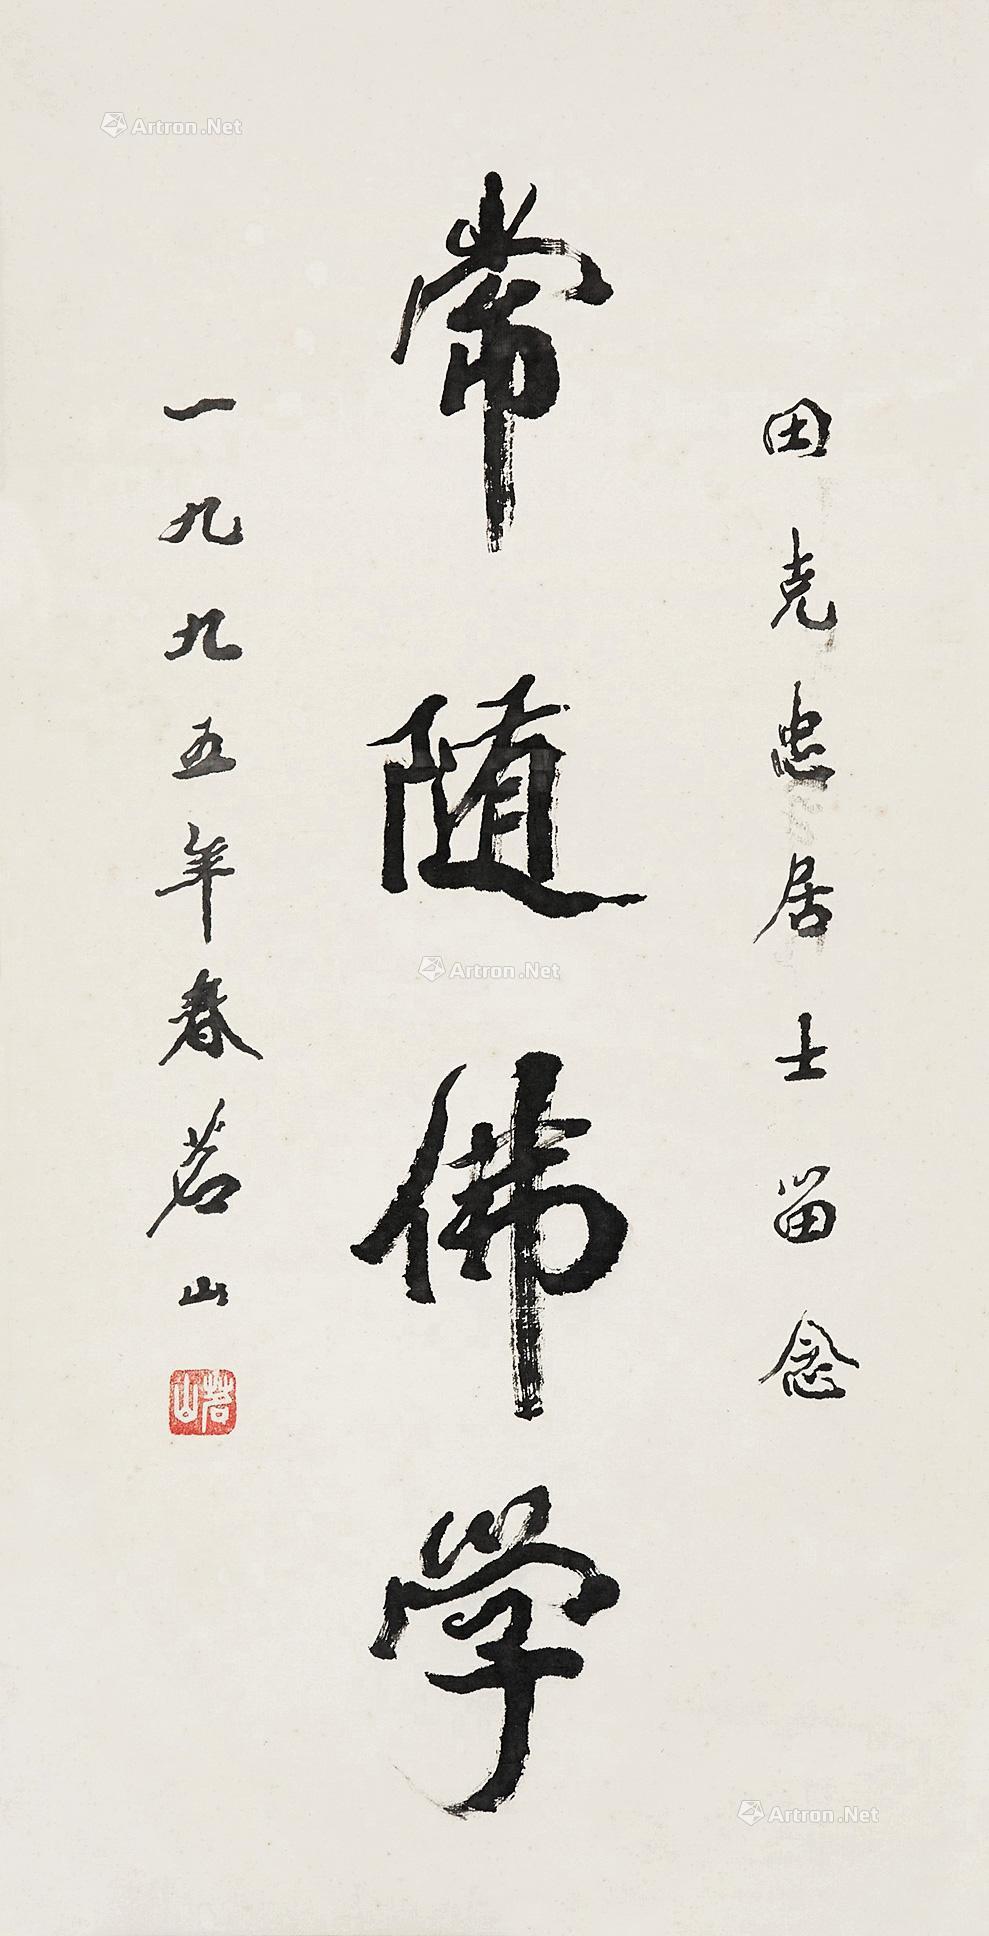 田克忠居士留念
常随佛学
一九九五年春茗山
茗山
Artron.Net
Artron.Net
Artron.Net